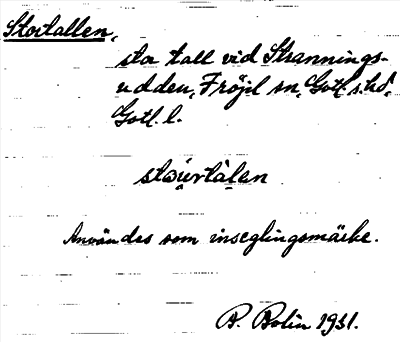 Stortallen,
stor tall vid Strannings-
udden, Fröjel sn, Gotl. s. hd,
Gotl. l.
stówrtàlen
Användes som inseglingsmärke.
B. Bolin 1931.